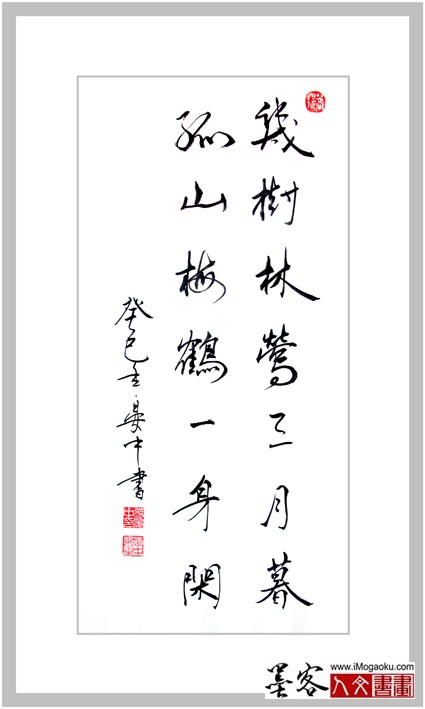 幾樹林鶯三月暮
孤山梅鶴一身閑
癸巳
中書
墨客
www.iMogaoku.com
人文書畫